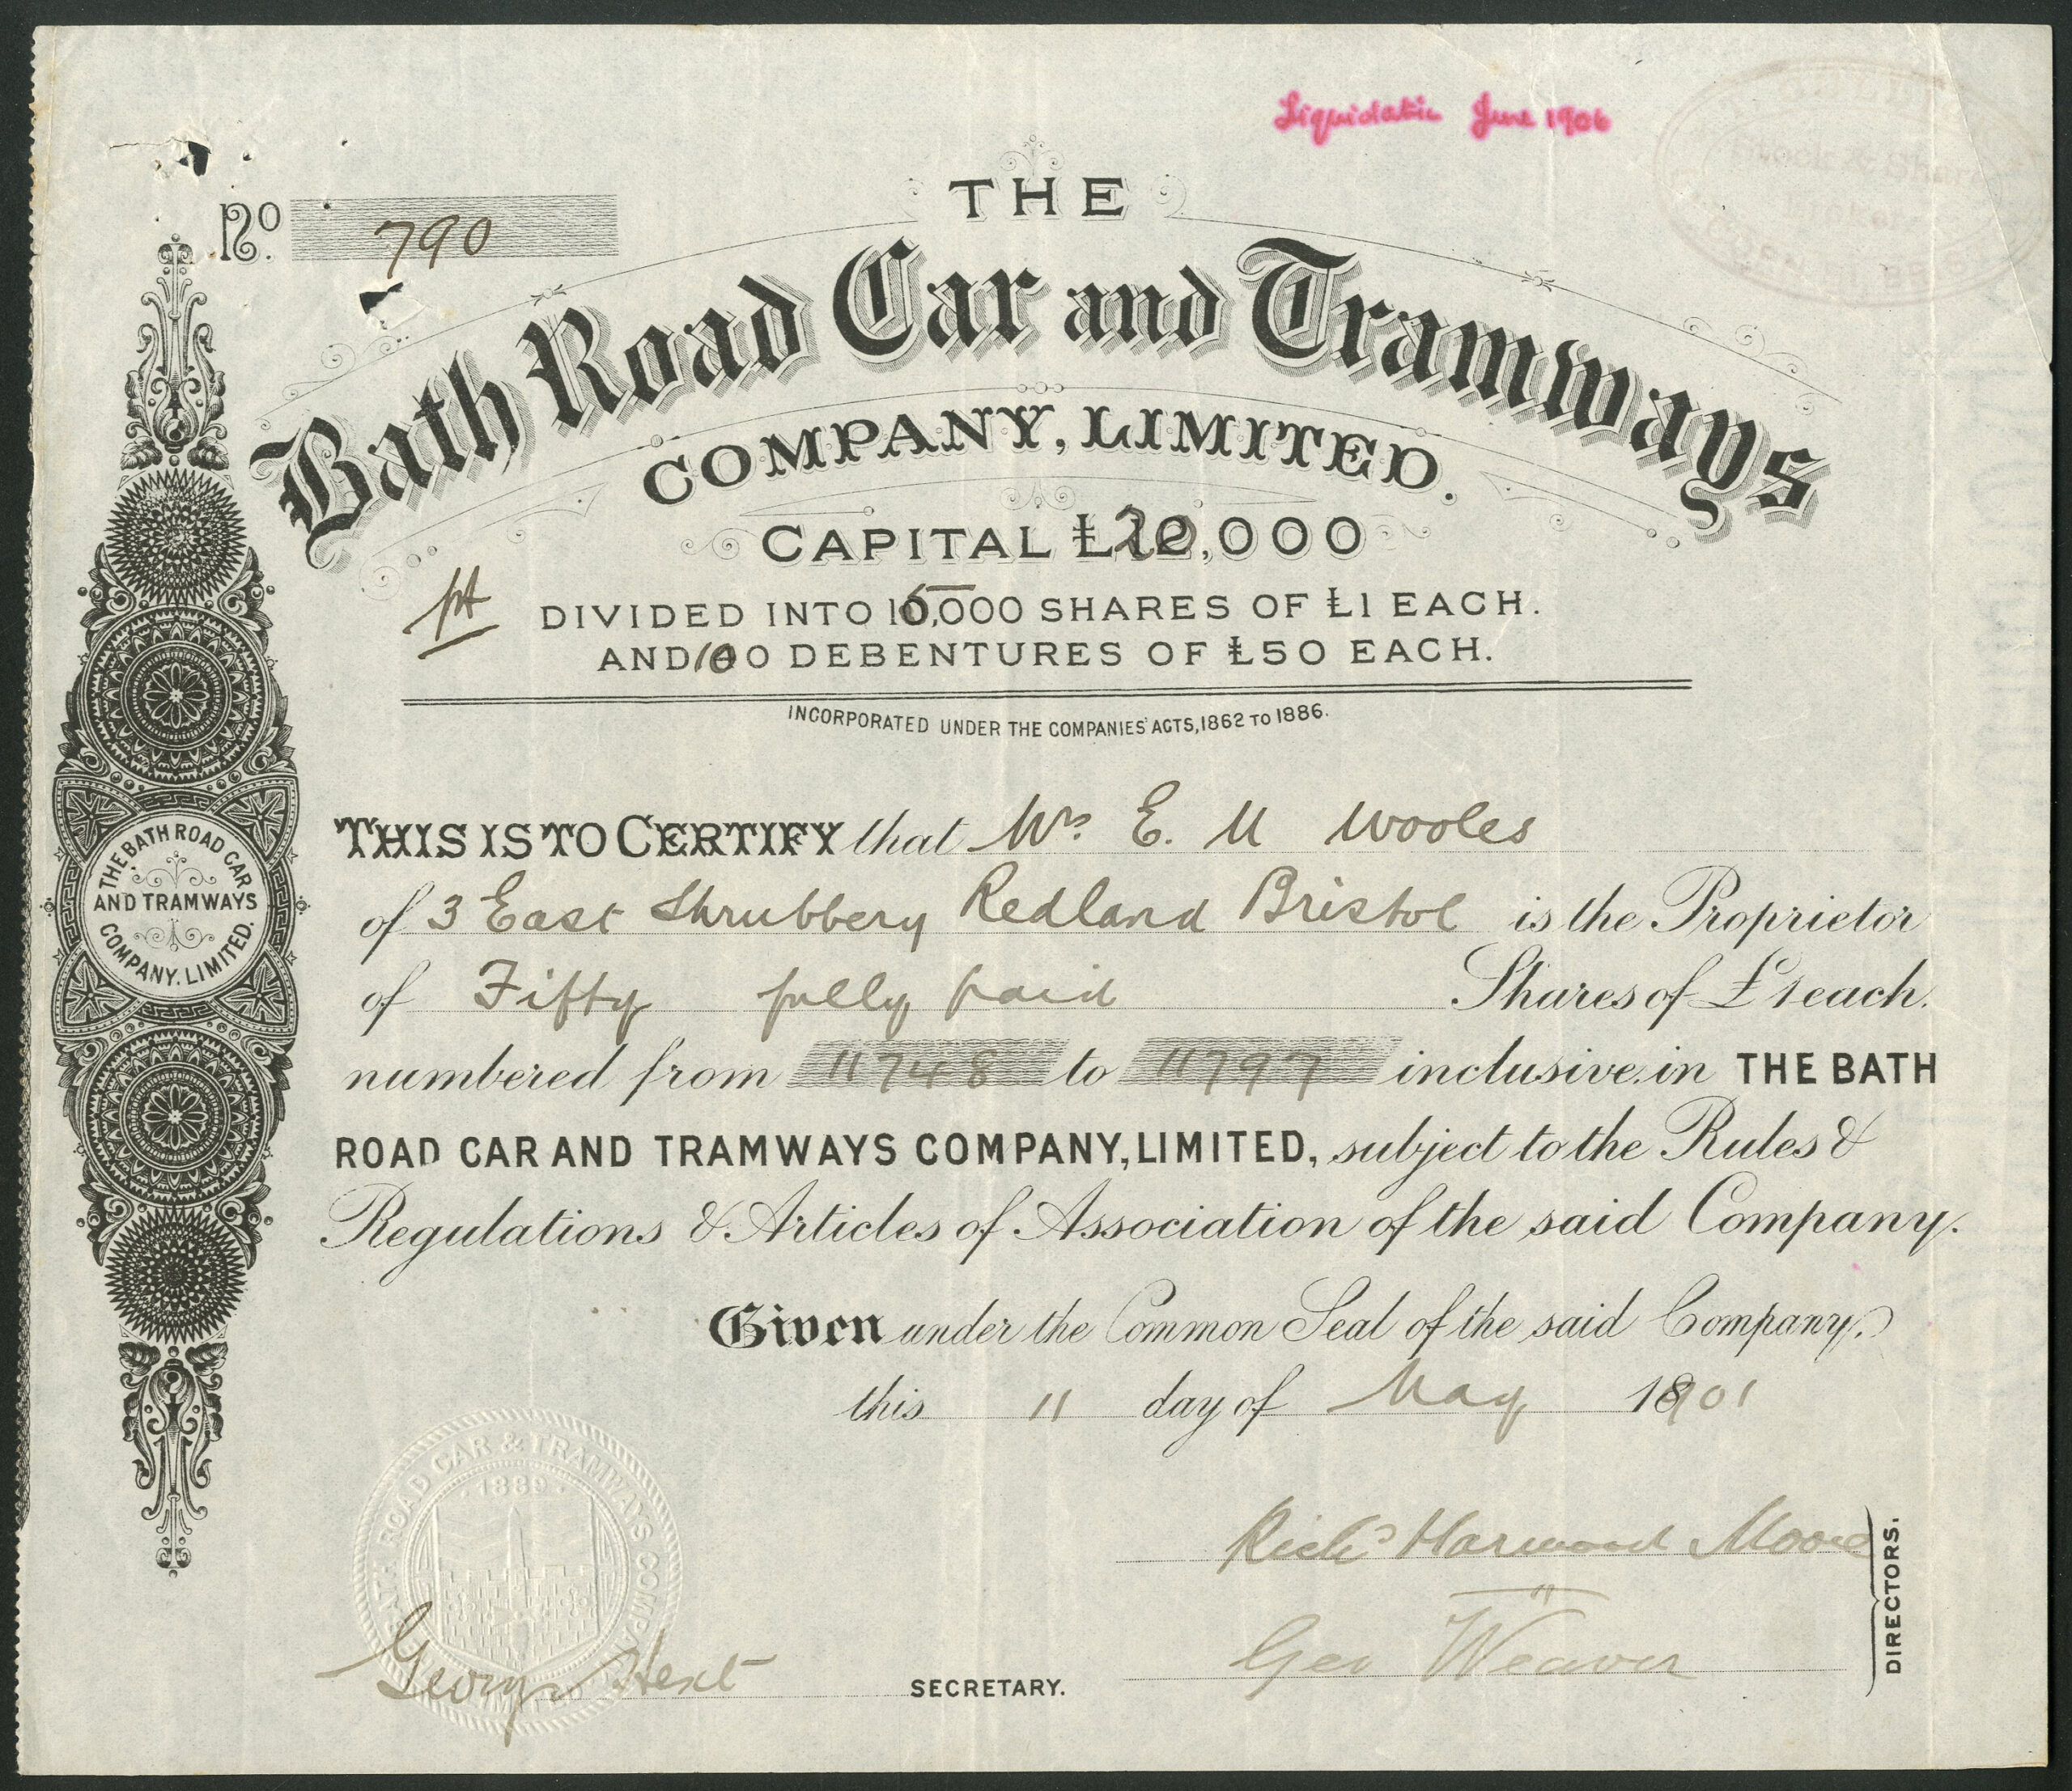 Liquidatin June 1906
No. 790
THE
Bath Road Car and Tramways
COMPANY, LIMITED.
CAPITAL £20,000
DIVIDED INTO 15,000 SHARES OF £1 EACH.
AND 100 DEBENTURES OF £50 EACH.
INCORPORATED UNDER THE COMPANIES' ACTS, 1862 TO 1886.
THIS IS TO CERTIFY that Mrs E. M Wooles
of 3 East Shrubbery Redland Bristol is the Proprietor
of Fifty fully paid Shares of £1 each.
numbered from 11748 to 11797 inclusive in THE BATH
ROAD CAR AND TRAMWAYS COMPANY, LIMITED, subject to the Rules &
Regulations & Articles of Association of the said Company.
Given under the Common Seal of the said Company,
this 11 day of May 1901
THE BATH ROAD CAR
AND TRAMWAYS
COMPANY. LIMITED.
BATH ROAD CAR & TRAMWAYS COMPANY
LIMITED
1889
Richd Harwood Moore
Geo Weaver
DIRECTORS.
George Hext SECRETARY.